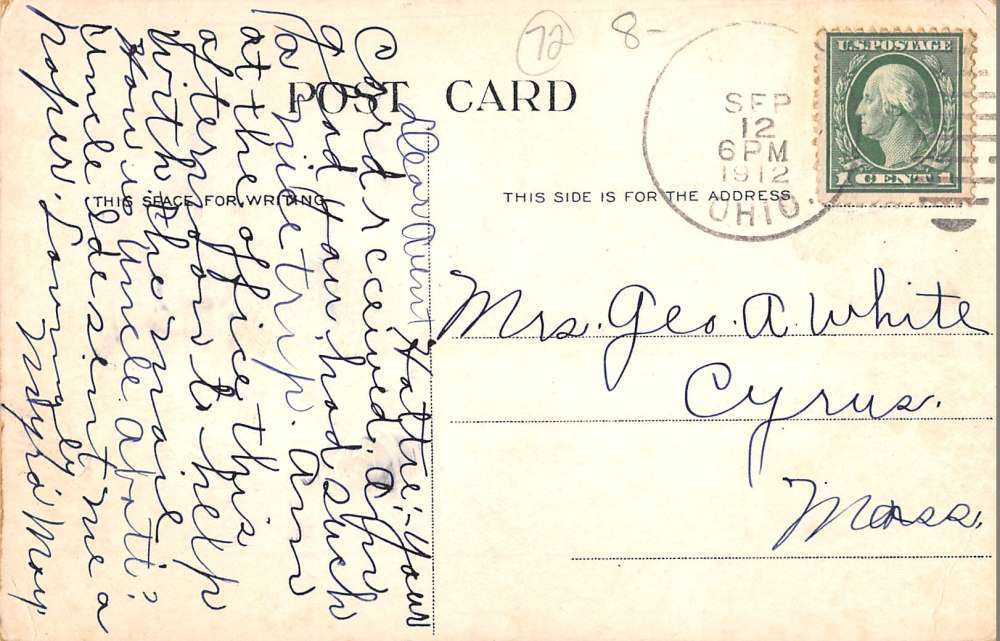 72
8-
POST CARD
U.S. POSTAGE
1 CENT 1
SEP
12
6 PM
1912
OHIO.
THIS SPACE FOR WRITING
THIS SIDE IS FOR THE ADDRESS
Dear Aunt Hattie:- Your
Card received. Am
glad you had such
a nice trip. Am
at the office this
afternoon to help
with the mail
How is Uncle
Uncle Ed sent me a
paper. Lovingly
May
Mrs. Geo. A. White
Cyrus.
Mass.